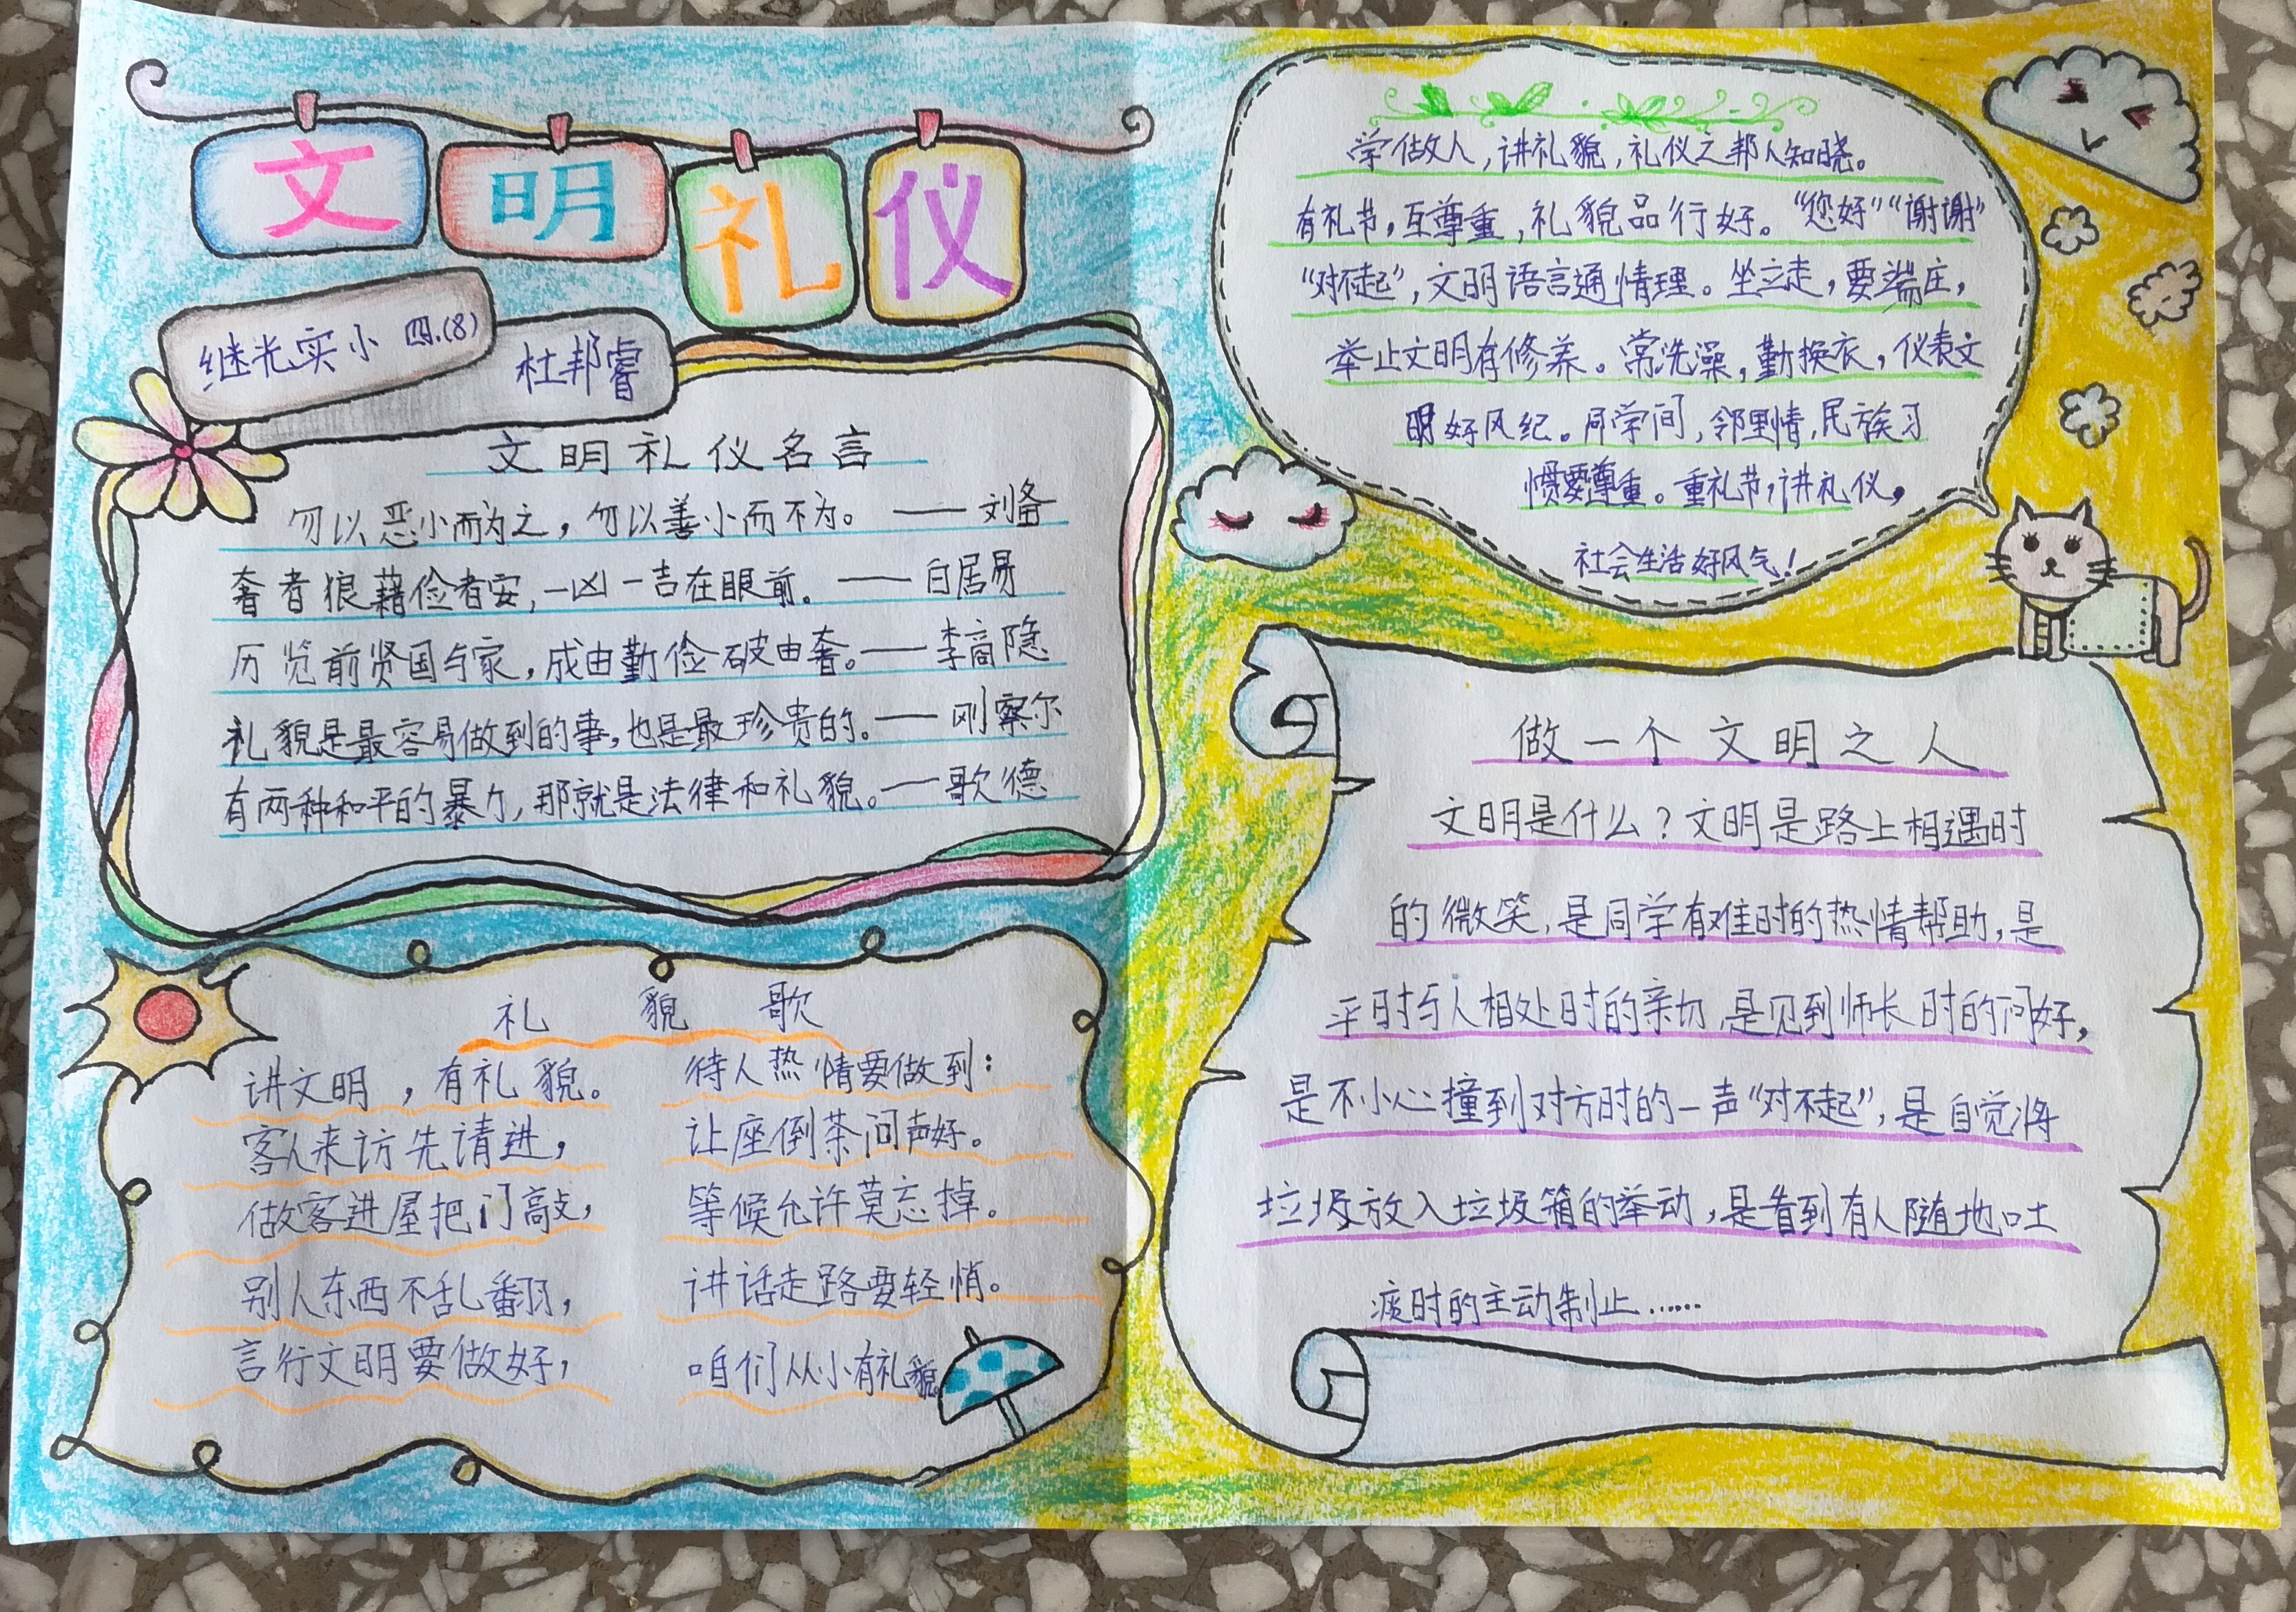 文明礼仪
继光实小 四.(8)
杜邦睿
文明礼仪名言
勿以恶小而为之，勿以善小而不为。——刘备
奢者狼藉俭者安，一凶一吉在眼前。——白居易
历览前贤国与家，成由勤俭破由奢。——李商隐
礼貌是最容易做到的事，也是最珍贵的。——刚察尔
有两种和平的暴力，那就是法律和礼貌。——歌德
礼貌歌
讲文明，有礼貌。
客人来访先请进，
做客进屋把门敲，
别人东西不乱翻，
言行文明要做好，
待人热情要做到：
让座倒茶问声好。
等候允许莫忘掉。
讲话走路要轻悄。
咱们从小有礼貌。
学做人，讲礼貌，礼仪之邦人知晓。
有礼节，互尊重，礼貌品行好。“您好”“谢谢”
“对不起”，文明语言通情理。坐立走，要端庄，
举止文明有修养。常洗澡，勤换衣，仪表文
明好风纪。同学间，邻里情，民族习
惯要尊重。重礼节，讲礼仪，
社会生活好风气！
做一个文明之人
文明是什么？文明是路上相遇时
的微笑，是同学有难时的热情帮助，是
平时与人相处时的亲切，是见到师长时的问好，
是不小心撞到对方时的一声“对不起”，是自觉将
垃圾放入垃圾箱的举动，是看到有人随地吐
痰时的主动制止……